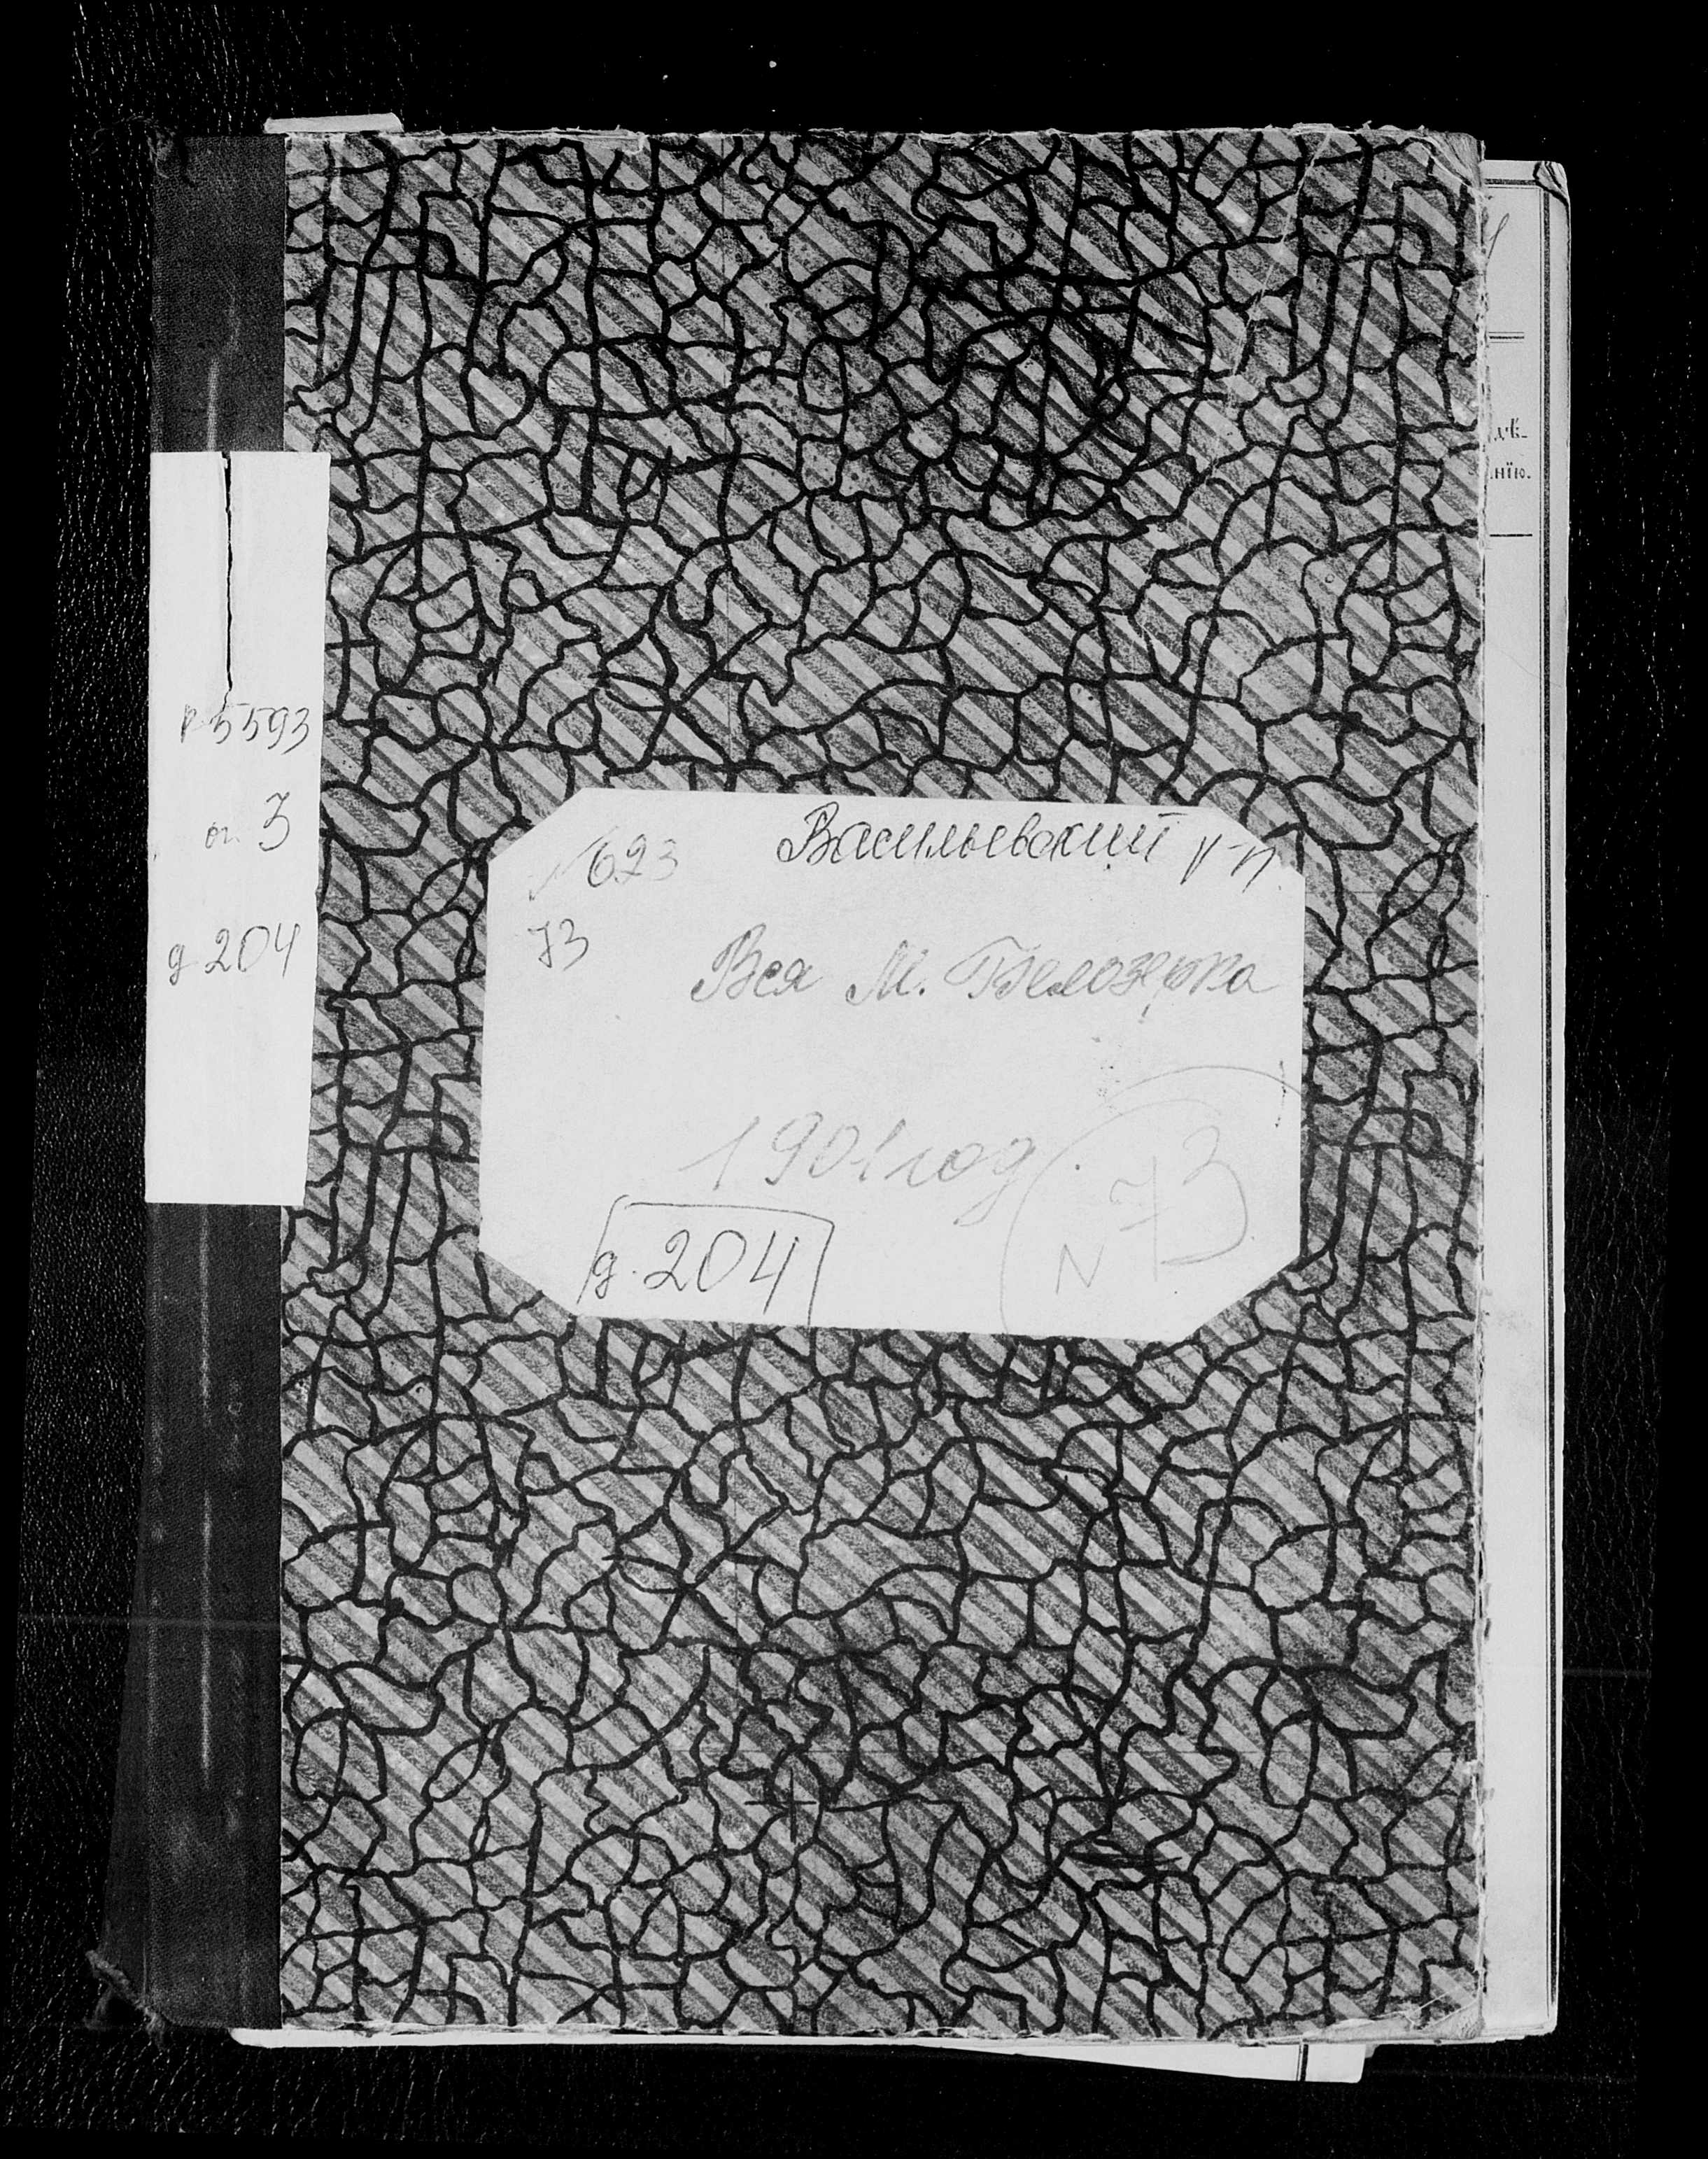 р 5593
оп. 3
д 204
№ 623
Васильевский р-н.
73
Вся М. Белозерка
1901 год
N 73
д. 204
лѣ-
нію.